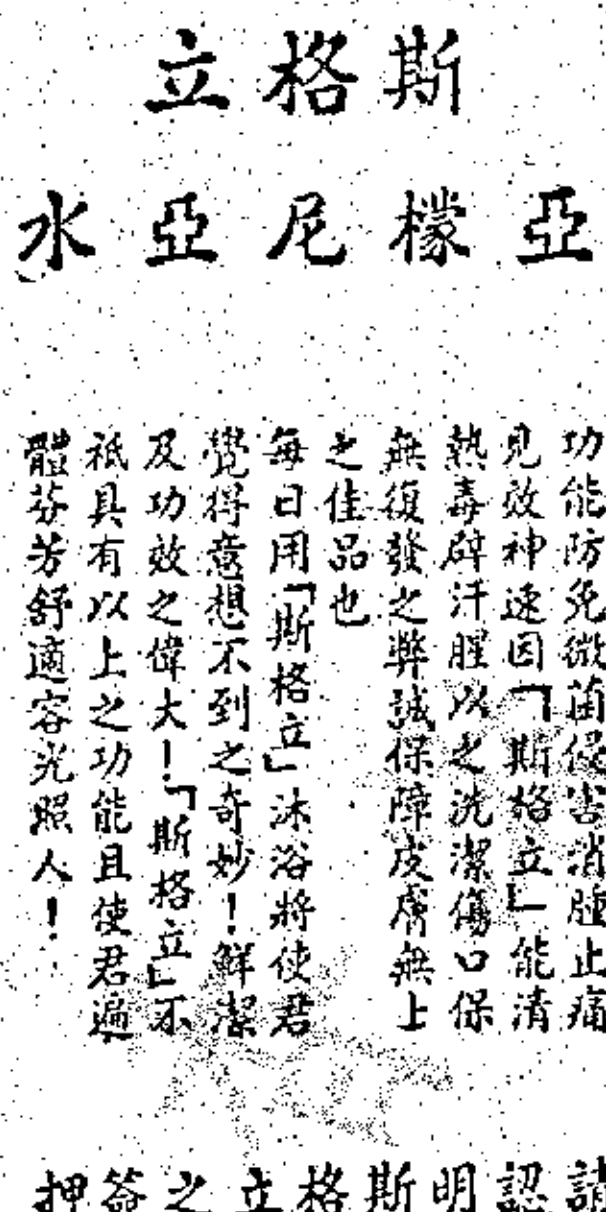 斯格立
亞檬尼亞水
功能防免微菌侵害消腫止痛
見效神速因「斯格立」能清
熱毒辟汗腥以之洗潔傷口保
無復發之弊誠保障皮膚無上
之佳品也
每日用「斯格立」沐浴將使君
覺得意想不到之奇妙!鮮潔
及功效之偉大!「斯格立」不
祇具有以上之功能且使君遍
體芬芳舒適容光照人!
請認明斯格立之簽押